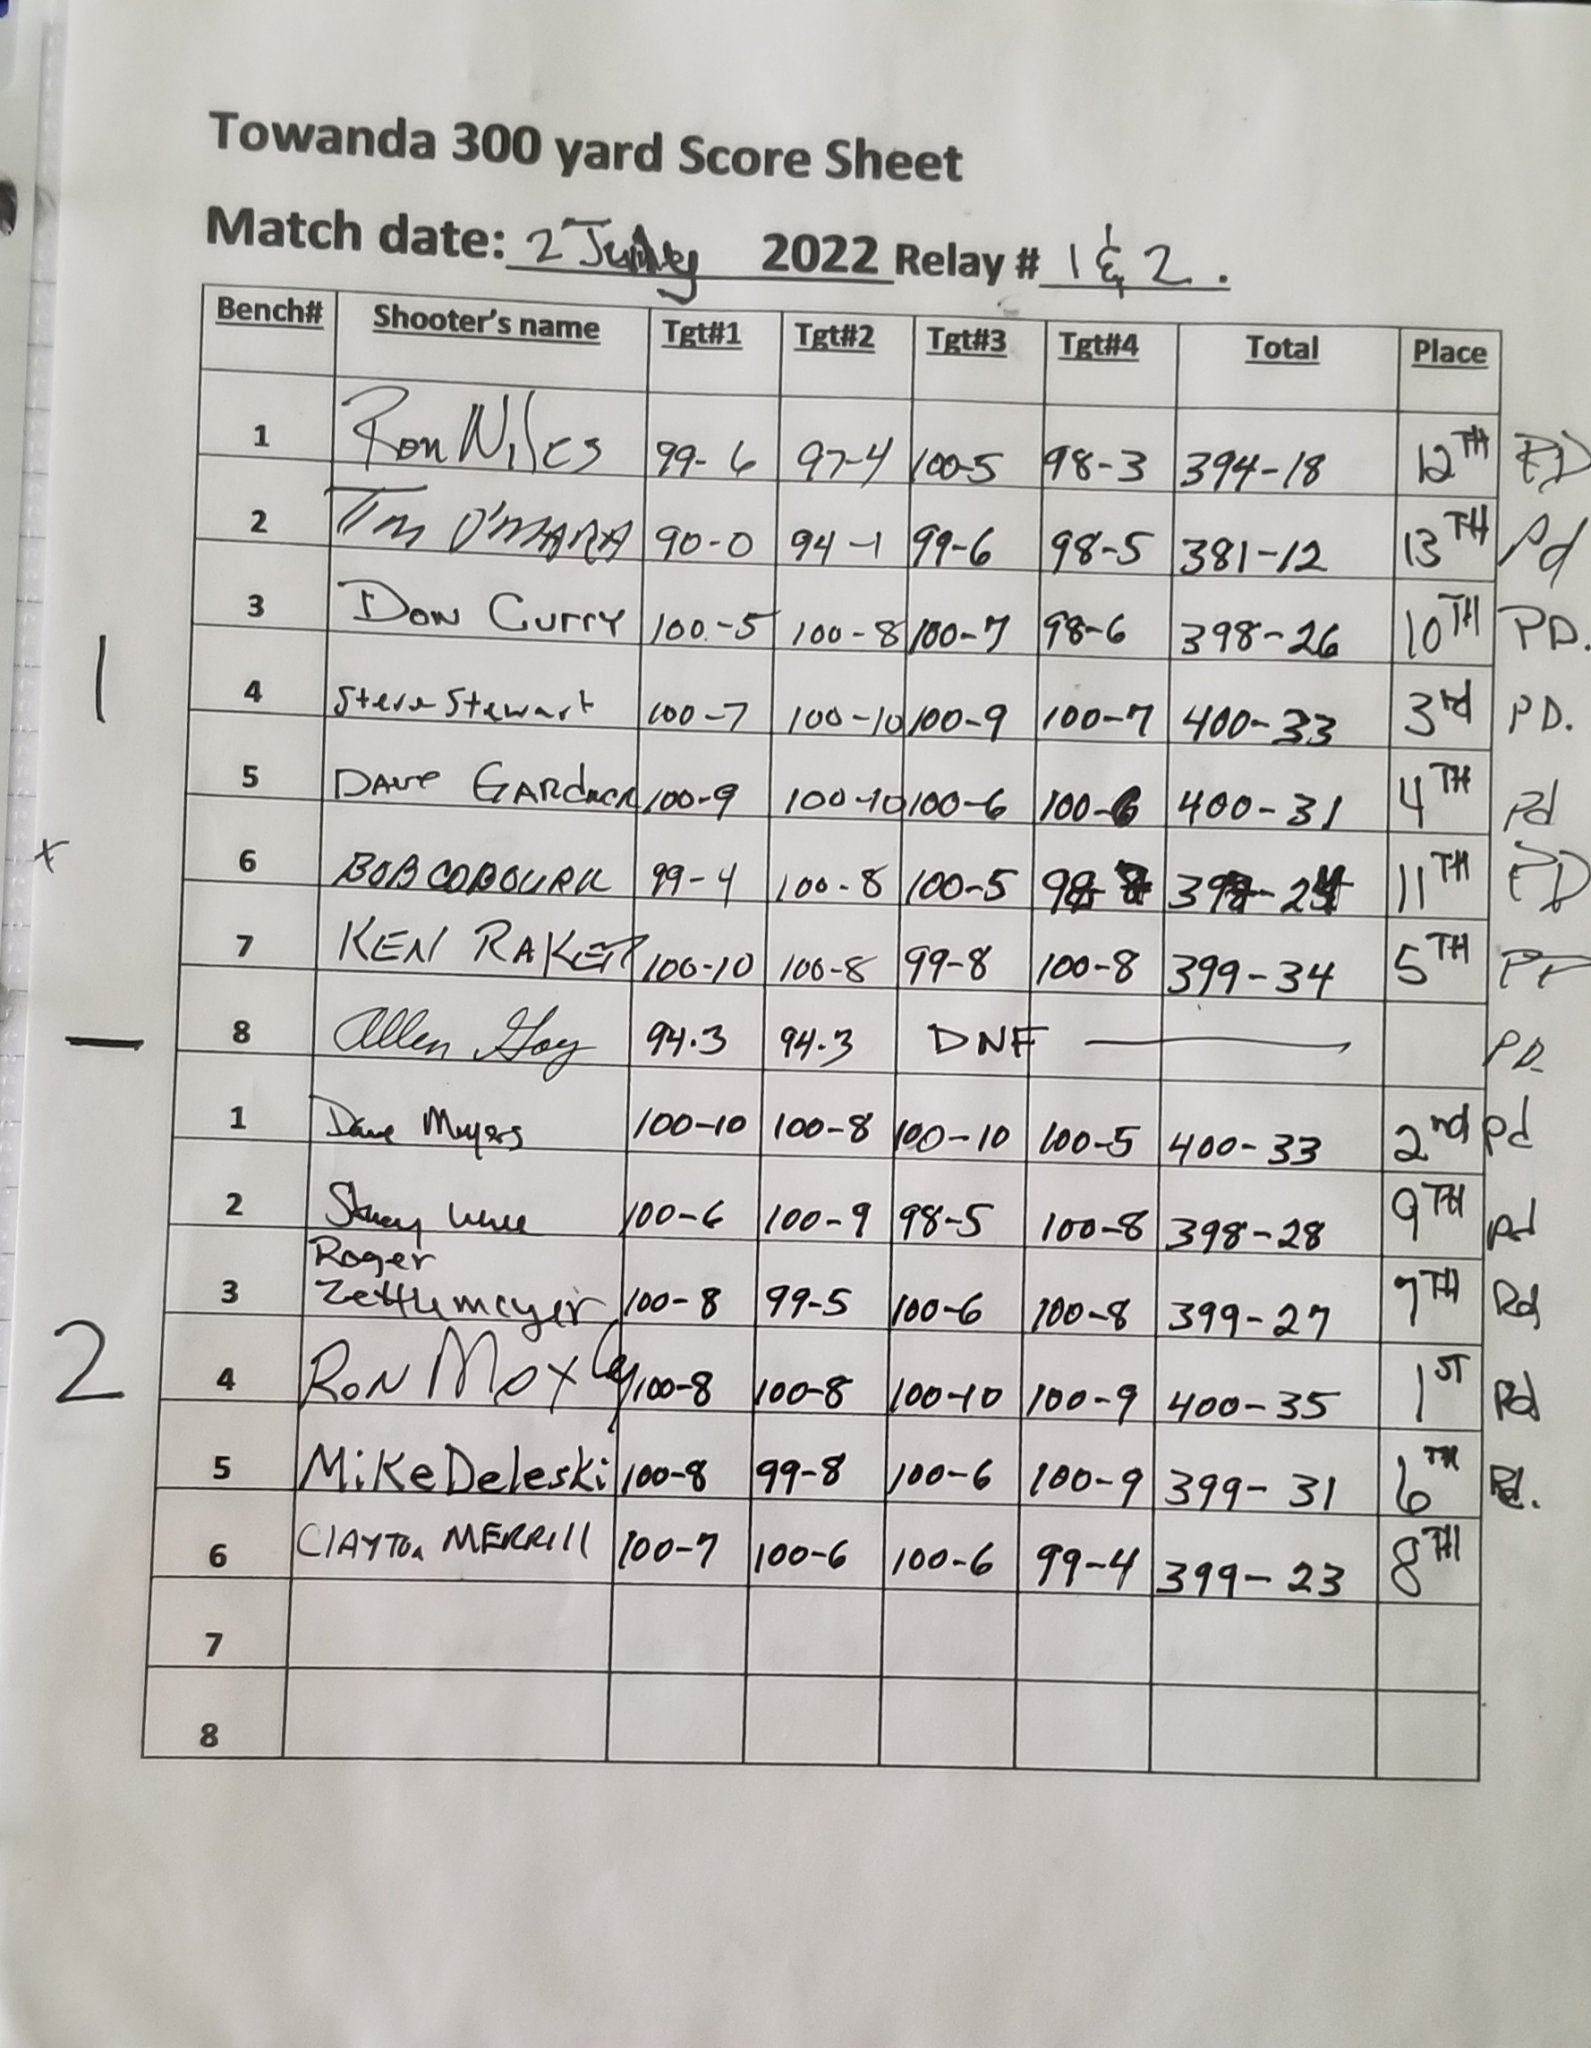 Towanda 300 yard Score Sheet
Match date: 2 July 2022 Relay # 1 & 2.
Bench# Shooter's name Tgt#1 Tgt#2 Tgt#3 Tgt#4 Total Place
1 Ron Niles 99-6 97-4 100-5 98-3 394-18 12TH PD
2 Tim O'MARA 90-0 94-1 99-6 98-5 381-12 13TH Pd
3 Don Curry 100-5 100-8 100-7 98-6 398-26 10TH PD.
1
4 Steve Stewart 100-7 100-10 100-9 100-7 400-33 3rd PD.
5 Dave Gardner 100-9 100-10 100-6 100-6 400-31 4TH Pd
x 6 BOB COBOURN 99-4 100-8 100-5 11TH PD
7 KEN RAKER 100-10 100-8 99-8 100-8 399-34 5TH
8 Allen 94.3 94.3 DNF PD
1 Dave Myers 100-10 100-8 100-10 100-5 400-33 2nd pd
2 100-6 100-9 98-5 100-8 398-28 9TH pd
3 Roger
Zettlemeyer 100-8 99-5 100-6 100-8 399-27 7TH Pd
2
4 RON Moxley 100-8 100-8 100-10 100-9 400-35 1ST Pd
5 Mike Deleski 100-8 99-8 100-6 100-9 399-31 6TH Pd.
6 CLAYTON MERRILL 100-7 100-6 100-6 99-4 399-23 8TH
7
8